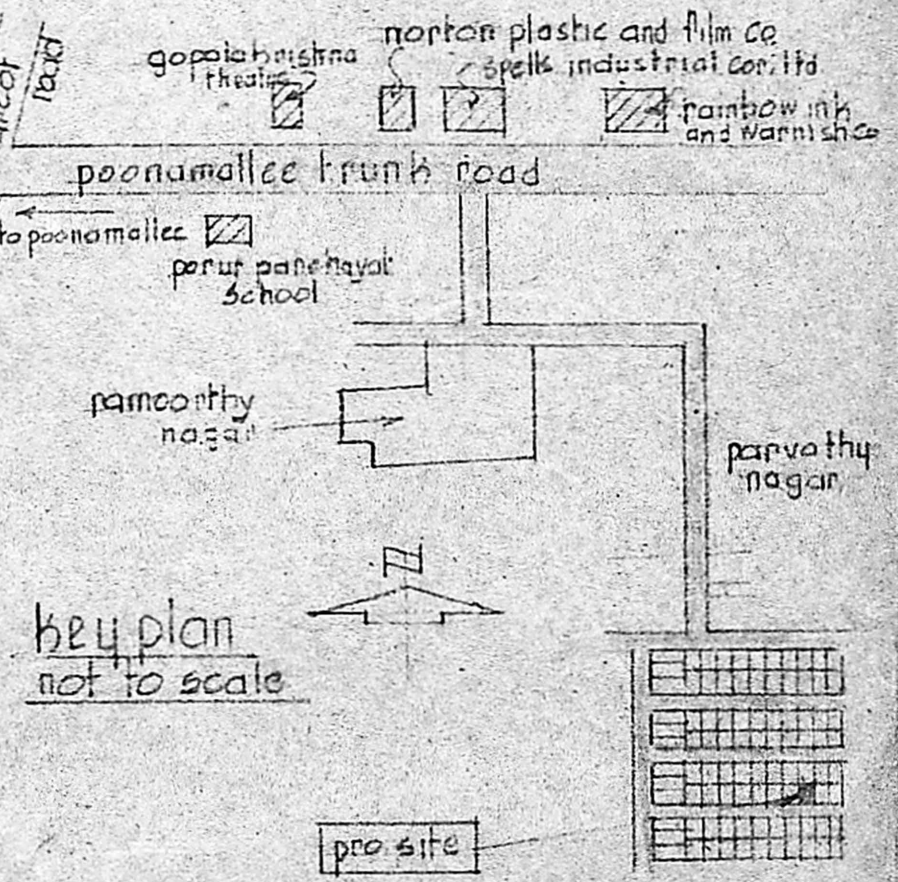 road
gopalakrishna
theatre
norton plastic and film co
spells industrial cor; ltd
rainbow ink
and warnish co
poonamallee trunk road
to poonamallee
porur panchayat
school
ramoorthy
nagar
parvathy
nagar
N
key plan
not to scale
pro site